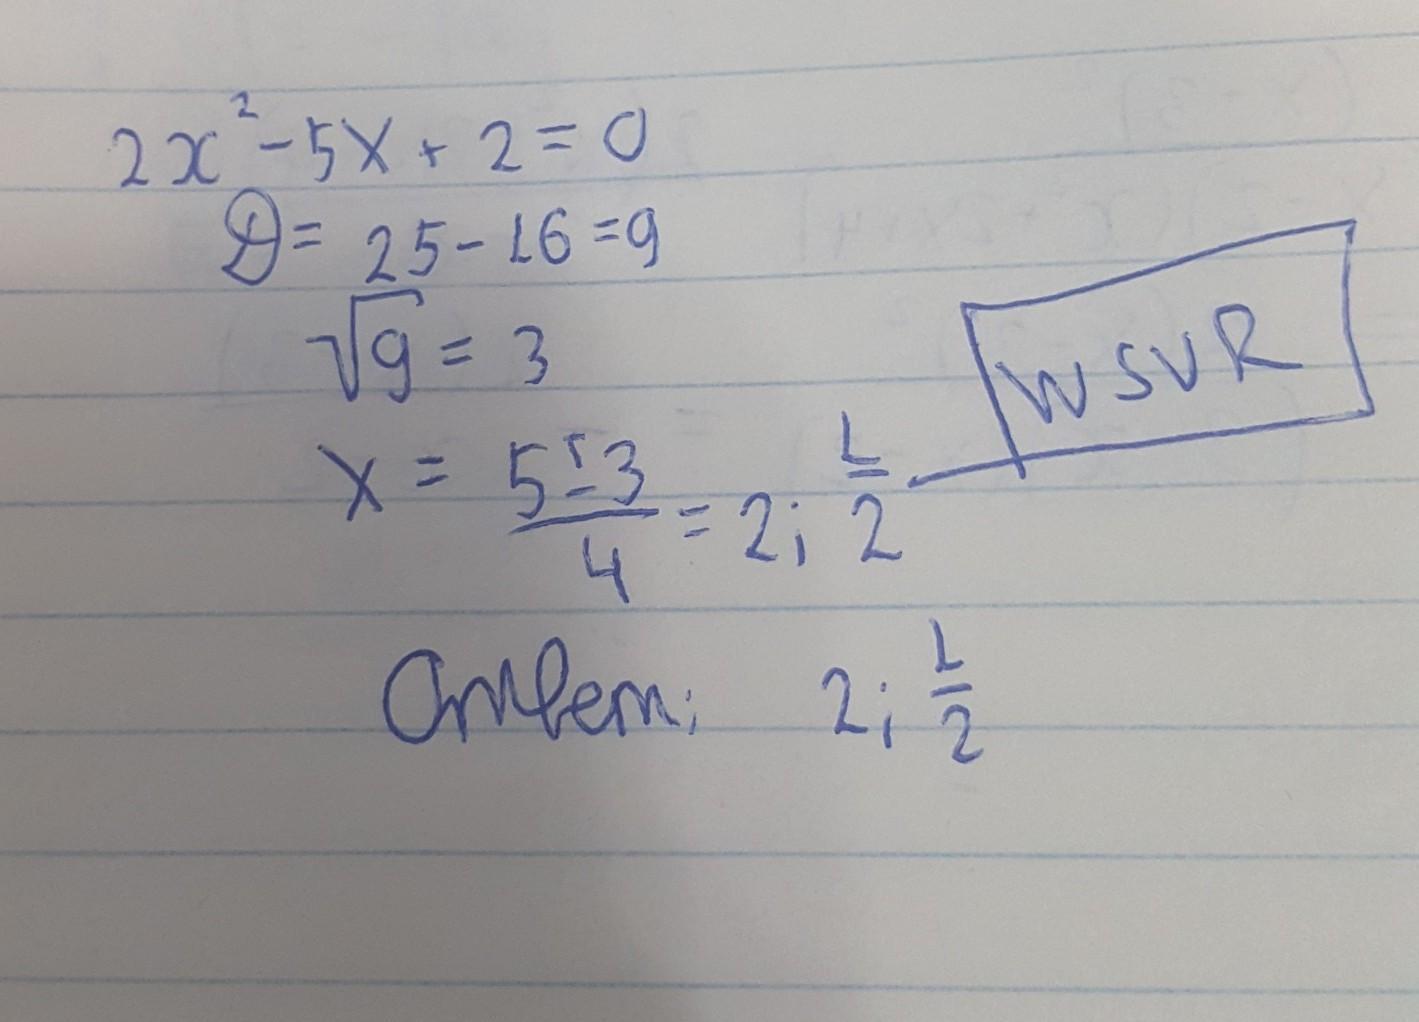 2x² - 5x + 2 = 0
D = 25 - 16 = 9
√9 = 3
x = (5 ± 3)/4 = 2; 1/2
WSVR
Ответ: 2; 1/2